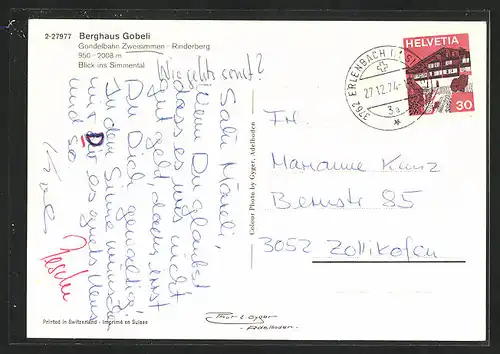 2-27977 Berghaus Gobeli
Gondelbahn Zweisimmen - Rinderberg
950 - 2008 m
Blick ins Simmental
Wie gehts sonst?
Salü
Wenn Du glaubst
dass es mir nicht
gut geht, dann irrst
Du Dich gewaltig.
In dem Sinne wünsche
ich Dir es guets Neus
und so
Printed in Switzerland - Imprimé en Suisse
Colour Photo by Gyger, Adelboden
Thor E Gyger
- Adelboden -
3762 ERLENBACH I.
27.12.74
3a
HELVETIA
30
Frl.
Marianne Kunz
Bernstr 85
3052 Zollikofen